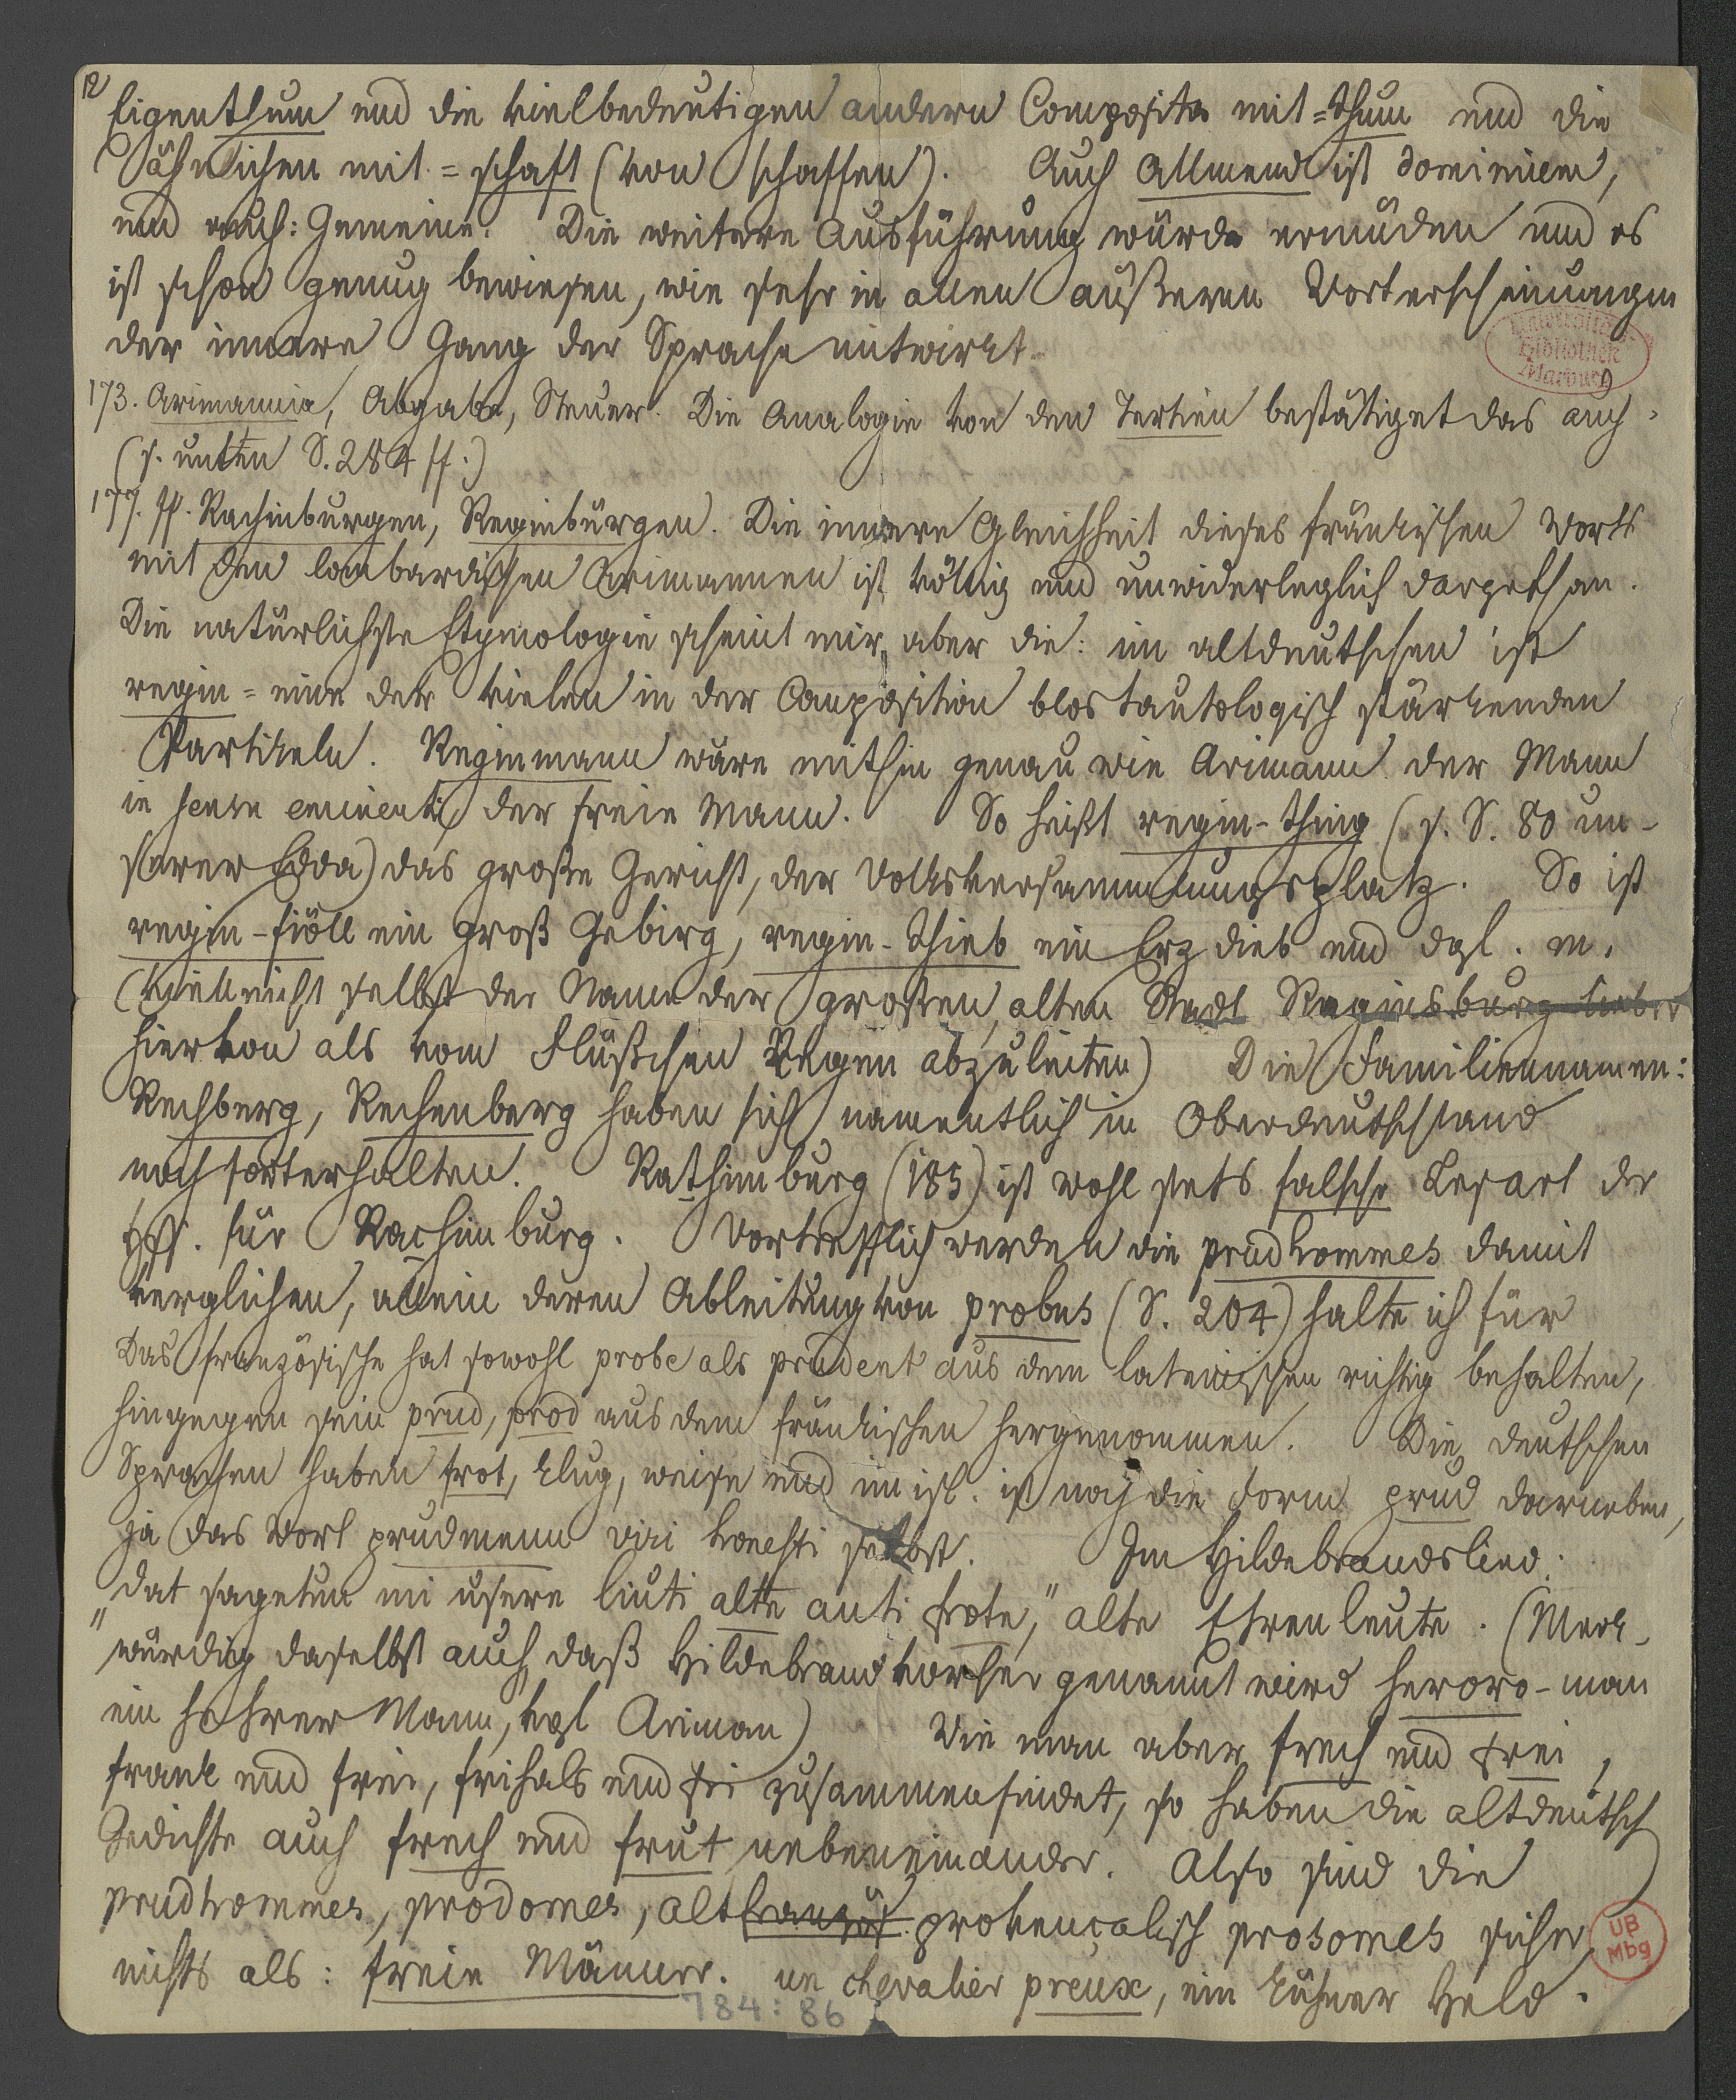 12
Eigenthum und die vielbedeutigen andern Composita mit =thum und die
ähnlichen mit =schaft (von schaffen). Auch Allmend ist dominium,
und auch: Gemeine. Die weitere Ausführung würde ermüden und es
ist schon genug bewiesen, wie sehr in allen äußeren Worterscheinungen
der innere Gang der Sprache mitwirkt.
173. Arimannia, Abgabe, Steuer. Die Analogie von den Tertien bestätiget das auch.
(s. unten S. 284 ff.)
177. ff. Rachinburgen, Reginburgen. Die innere Gleichheit dieses fränkischen Worts
mit den lombardischen Arimannen ist völlig und unwiderleglich dargethan.
Die natürlichste Etymologie scheint mir aber die: im altdeutschen ist
regin = eine der vielen in der Composition blos tautologisch stärkenden
Partikeln. Reginmann wäre mithin genau wie Arimann der Mann
in sensu eminenti, der freie Mann. So heißt regin-thing (s. S. 80 un-
serer Edda) das große Gericht, der Volksversammlungsplatz. So ist
regin-fiöll ein groß Gebirg, regin-thiob ein Erzdieb und dgl. m.
(vielleicht selbst der Name der großen, alten Stadt Reginsburg lieber
hiervon als vom Flüßchen Regen abzuleiten) Die Familiennamen:
Rechberg, Rechenberg haben sich namentlich in Oberdeutschland
noch forterhalten. Rathimburg (185) ist wohl stets falsche Lesart der
Hss. für Rachimburg. Vortrefflich werden die prudhommes damit
verglichen, allein deren Ableitung von probus (S. 204) halte ich für
Das französische hat sowohl probe als prudent aus dem lateinischen richtig behalten,
hingegen sein prud, prod aus dem fränkischen hergenommen. Die deutschen
Sprachen haben frot, klug, weise und im isl. ist noch die Form prud darneben,
ja das Wort prudmenn viri honesti selbst. Im Hildebrandslied:
"dat sagetun mi usere liuti alte anti frote," alte Ehrenleute. (Merk-
würdig daselbst auch, daß Hildebrand vorher genannt wird heroro-man
ein hehrer Mann, vgl Ariman) Wie man aber frech und frei,
frank und frei, frihals und fri zusammenfindet, so haben die altdeutsch
Gedichte auch frech und frut nebeneinander. Also sind die
prudhommes, prodomes, altfranzös. provençalisch prosomes sicher
nichts als: freie Männer. un chevalier preux, ein kühner Held.
Universitäts-
Bibliothek
Marburg
UB
Mbg
784:86